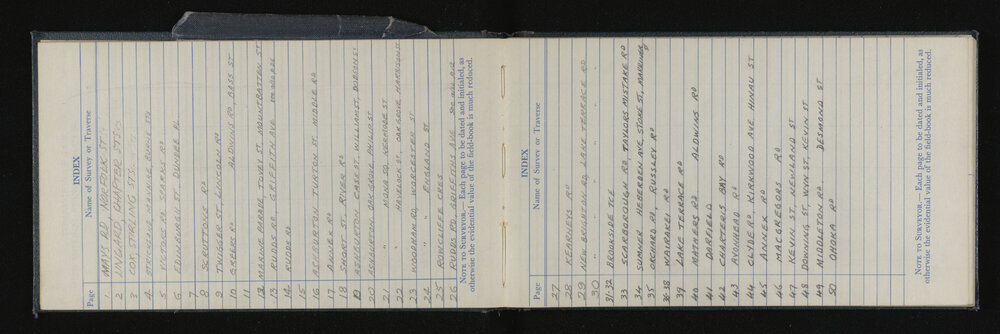 INDEX
Page Name of Survey or Traverse
1 MAYS RD NORFOLK ST
2 LINGARD CHAPTER STS
3 COX, STIRLING STS
4
5 VICTORS RD SPARKS RD
6 EDINBURGH ST. DUNDEE PL
7
8 SCRUTTONS RD
9 TWIGGER ST. LINCOLN RD
10 GREERS RD ALDWINS RD, BASS ST
11
12 MARINE PARADE TOVEY ST. MOUNTBATTEN ST
13 RUDDS RD GRIFFITH AVE
14 RUDDS RD
15
16 ASHBURTON, TURTON ST. MIDDLE RD
17 ANNEX RD
18 SHORT ST. RIVER RD
19 ASHBURTON CASS ST. WILLIAM ST, DOBSON ST
20 ASHBURTON OAK GROVE, PHILIP ST
21 " MONA SQ, NERRIDGE ST
22 " HAVELOCK ST, OAK GROVE HARRISON ST
23 WOODHAM RD, WORCESTER ST
24 " " ENGLAND ST
25 ROKCLIFFE CRES
26 RUDDS RD GRIFFITHS AVE
NOTE TO SURVEYOR.—Each page to be dated and initialed, as
otherwise the evidential value of the field-book is much reduced.
INDEX
Page Name of Survey or Traverse
27
28 KEARNEYS RD
29 NEW BRIGHTON RD, LAKE TERRACE RD
30 " " "
31-32 BROOKSIDE TCE
33 SCARBOROUGH RD, TAYLORS MISTAKE RD
34 SUMNER HEBERDEN AVE, STOKE ST, MARRINER ST
35 ORCHARD RD, RUSSLEY RD
36-38 WAIRAKEI RD
39 LAKE TERRACE RD
40 MATHERS RD ALDWINS RD
41 DARFIELD
42 CHARTERIS BAY RD
43 AVONHEAD RD
44 CLYDE RD, KIRKWOOD AVE HINAU ST
45 ANNEX RD
46 MACGREGORS RD
47 KEVIN ST, NEWLAND ST
48 DOWNING ST, WYN ST, KEVIN ST
49 MIDDLETON RD DESMOND ST
50 OAOKA RD
NOTE TO SURVEYOR.—Each page to be dated and initialed, as
otherwise the evidential value of the field-book is much reduced.